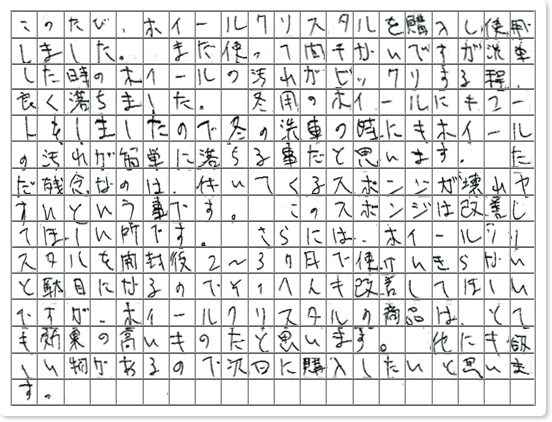 このたび、ホイールクリスタルを購入し使用
しました。 まだ使って間もないですが洗車
した時のホイールの汚れがビックリする程、
良く落ちました。 冬用のホイールにもコー
トをしましたので冬の洗車の時にもホイール
の汚れが簡単に落ちる事だと思います。 た
だ残念なのは、付いてくるスポンジが壊れや
すいという事です。 このスポンジは改善し
てほしい所です。 さらには、ホイールクリ
スタルを開封後2～3ヶ月で使いきらない
と駄目になるのでそのへんも改善してほしい
ですが、ホイールクリスタルの商品は、とて
も効果の高いものだと思います。 他にも欲
しい物があるので次回に購入したいと思いま
す。